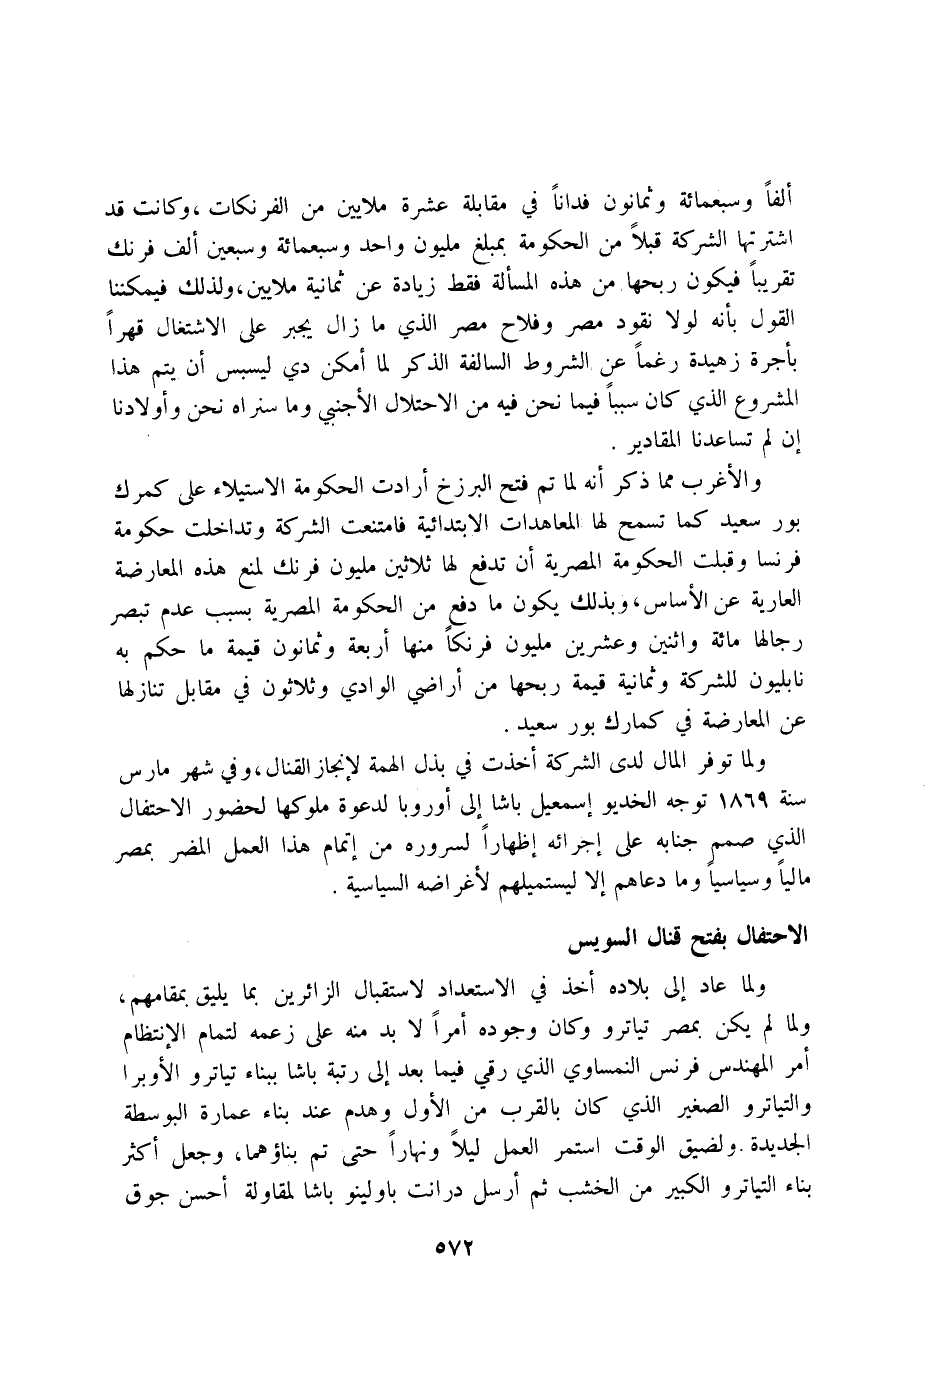 ألفاً وسبعمائة وثمانون فداناً في مقابلة عشرة ملايين من الفرنكات ،وكانت قد
اشترتها الشركة قبلاً من الحكومة بمبلغ مليون واحد وسبعمائة وسبعين ألف فرنك
تقريباً فيكون ربحها من هذه المسألة فقط زيادة عن ثمانية ملايين،ولذلك فيمكننا
القول بأنه لولا نقود مصر وفلاح مصر الذي ما زال يجبر على الاشتغال قهراً
بأجرة زهيدة رغماً عن الشروط السالفة الذكر لما أمكن دي ليسبس أن يتم هذا
المشروع الذي كان سبباً فيما نحن فيه من الاحتلال الأجنبي وما سنراه نحن وأولادنا
إن لم تساعدنا المقادير .
والأغرب مما ذكر أنه لما تم فتح البرزخ أرادت الحكومة الاستيلاء على كمرك
بور سعيد كما تسمح لها المعاهدات الابتدائية فامتنعت الشركة وتداخلت حكومة
فرنسا وقبلت الحكومة المصرية أن تدفع لها ثلاثين مليون فرنك لمنع هذه المعارضة
العارية عن الأساس،وبذلك يكون ما دفع من الحكومة المصرية بسبب عدم تبصر
رجالها مائة واثنين وعشرين مليون فرنكاً منها أربعة وثمانون قيمة ما حكم به
نابليون للشركة وثمانية قيمة ربحها من أراضي الوادي وثلاثون في مقابل تنازلها
عن المعارضة في كمارك بور سعيد .
ولما توفر المال لدى الشركة أخذت في بذل الهمة لإنجاز القنال،وفي شهر مارس
سنة ١٨٦٩ توجه الخديو إسمعيل باشا إلى أوروبا لدعوة ملوكها لحضور الاحتفال
الذي صمم جنابه على إجرائه إظهاراً لسروره من إتمام هذا العمل المضر بمصر
مالياً وسياسياً وما دعاهم إلا ليستميلهم لأغراضه السياسية .
الاحتفال بفتح قنال السويس
ولما عاد إلى بلاده أخذ في الاستعداد لاستقبال الزائرين بما يليق بمقامهم،
ولما لم يكن بمصر تياترو وكان وجوده أمراً لا بد منه على زعمه لتمام الإنتظام
أمر المهندس فرنس النمساوي الذي رقي فيما بعد إلى رتبة باشا ببناء تياترو الأوبرا
والتياترو الصغير الذي كان بالقرب من الأول وهدم عند بناء عمارة البوسطة
الجديدة.ولضيق الوقت استمر العمل ليلاً ونهاراً حتى تم بناؤهما، وجعل أكثر
بناء التياترو الكبير من الخشب ثم أرسل درانت باولينو باشا لمقاولة أحسن جوق
٥٧٢